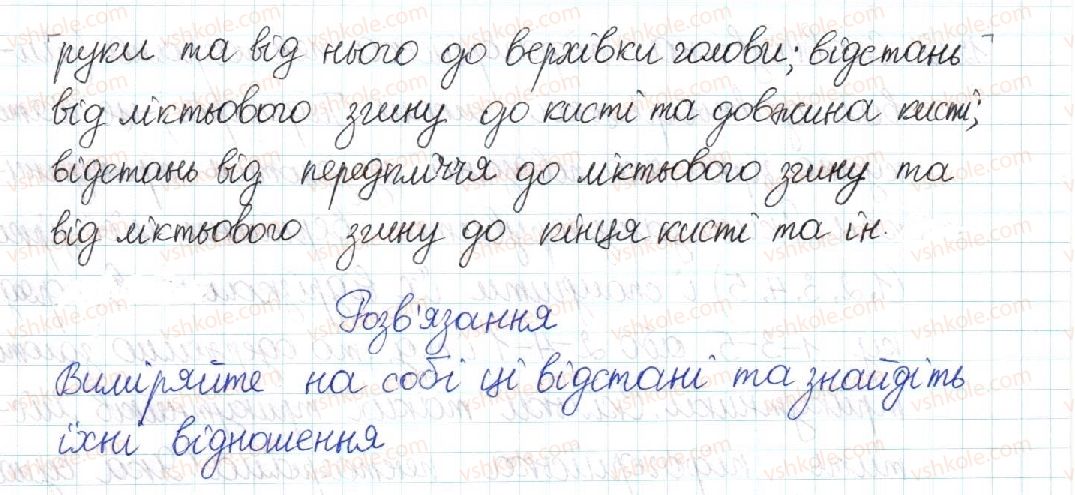 руки та від нього до верхівки голови; відстань
від ліктьового згину до кисті та довжина кисті;
відстань від передпліччя до ліктьового згину та
від ліктьового згину до кінця кисті та ін.
Розв'язання
Виміряйте на собі ці відстані та знайдіть
їхні відношення